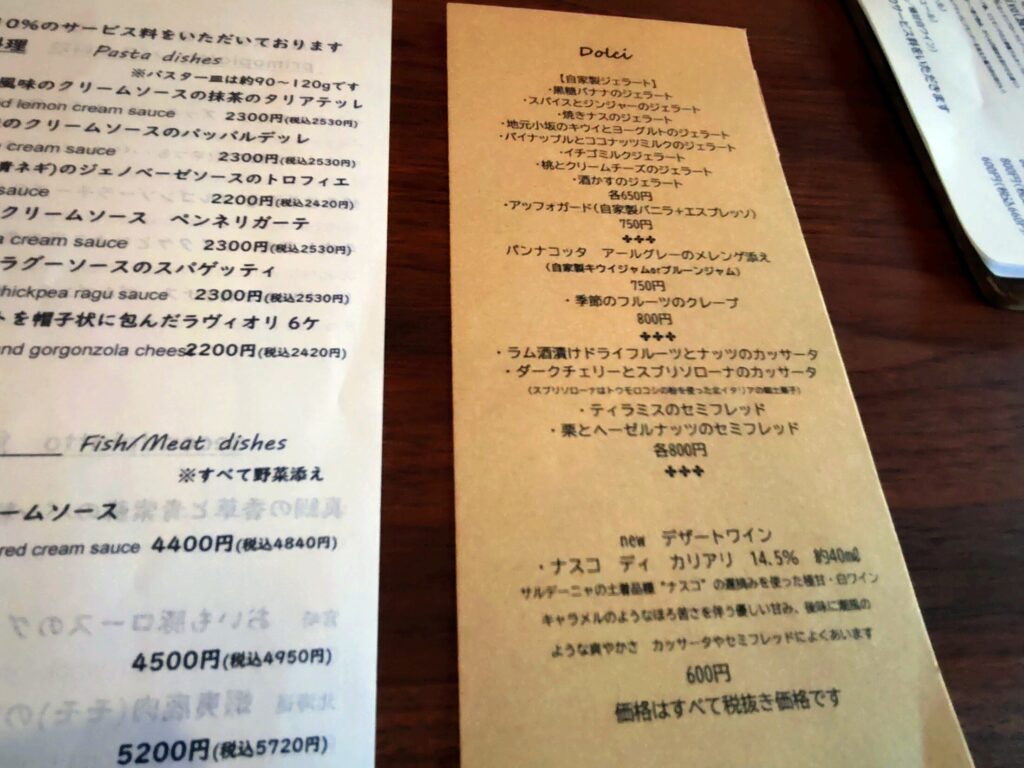 0%のサービス料をいただいております
料理 Pasta dishes
※パスタ一皿は約90～120gです
風味のクリームソースの抹茶のタリアテッレ
lemon cream sauce 2300円(税込2530円)
のクリームソースのパッパルデッレ
cream sauce 2300円(税込2530円)
青ネギ)のジェノベーゼソースのトロフィエ
sauce 2200円(税込2420円)
クリームソース ペンネリガーテ
cream sauce 2300円(税込2530円)
ラグーソースのスパゲッティ
chickpea ragu sauce 2300円(税込2530円)
トを帽子状に包んだラヴィオリ 6ケ
and gorgonzola cheese 2200円(税込2420円)
Fish/Meat dishes
※すべて野菜添え
ームソース
red cream sauce 4400円(税込4840円)
4500円(税込4950円)
5200円(税込5720円)
Dolci
【自家製ジェラート】
・黒糖バナナのジェラート
・スパイスとジンジャーのジェラート
・焼きナスのジェラート
・地元小坂のキウイとヨーグルトのジェラート
・パイナップルとココナッツミルクのジェラート
・イチゴミルクジェラート
・桃とクリームチーズのジェラート
・酒かすのジェラート
各650円
・アッフォガード(自家製バニラ+エスプレッソ)
750円
✤✤✤
パンナコッタ アールグレーのメレンゲ添え
(自家製キウイジャムorプルーンジャム)
750円
・季節のフルーツのクレープ
800円
✤✤✤
・ラム酒漬けドライフルーツとナッツのカッサータ
・ダークチェリーとスブリソローナのカッサータ
(スブリソローナはトウモロコシの粉を使った北イタリアの郷土菓子)
・ティラミスのセミフレッド
・栗とヘーゼルナッツのセミフレッド
各800円
✤✤✤
new デザートワイン
・ナスコ ディ カリアリ 14.5% 約40ml
サルデーニャの土着品種"ナスコ"の遅摘みを使った極甘・白ワイン
キャラメルのようなほろ苦さを伴う優しい甘み、後味に潮風の
ような爽やかさ カッサータやセミフレッドによくあいます
600円
価格はすべて税抜き価格です
サービス料をいただきます